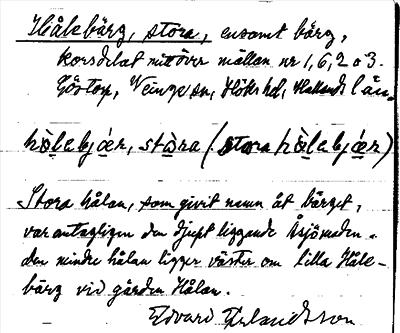 Hålebärg, stora, ensamt bärg,
korsdelat mitt över mällan nr 1, 6, 2 o 3.
Göstorp, Veinge sn, Höks hd, Hallands län.
hòlebjér, stòra (stora hòlebjér)
Stora hålan, som givit namn åt bärget,
var antagligen den djupt liggande Åsjömaden.
den mindre hålan ligger väster om Lilla Håle-
bärg vid gården Hålan.
Edvard Erlandsson